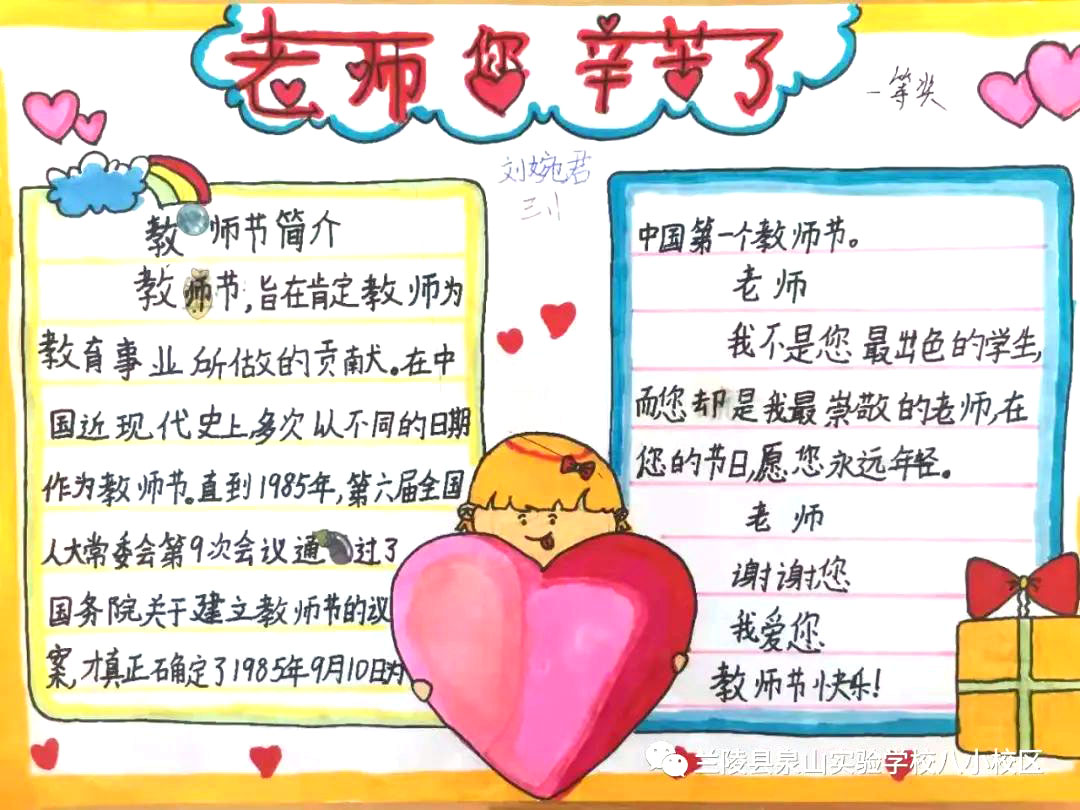 老师您辛苦了
一等奖
刘婉君
三八
教师节简介
教师节,旨在肯定教师为
教育事业所做的贡献。在中
国近现代史上,多次以不同的日期
作为教师节。直到1985年,第六届全国
人大常委会第9次会议通过了
国务院关于建立教师节的议
案,才真正石确定了1985年9月10日为
中国第一个教师节。
老师
我不是您最出色的学生,
而您却是我最崇敬的老师,在
您的节日,愿您永远年轻。
老师
谢谢您
我爱您
教师节快乐!
兰陵县泉山实验学校八小校区